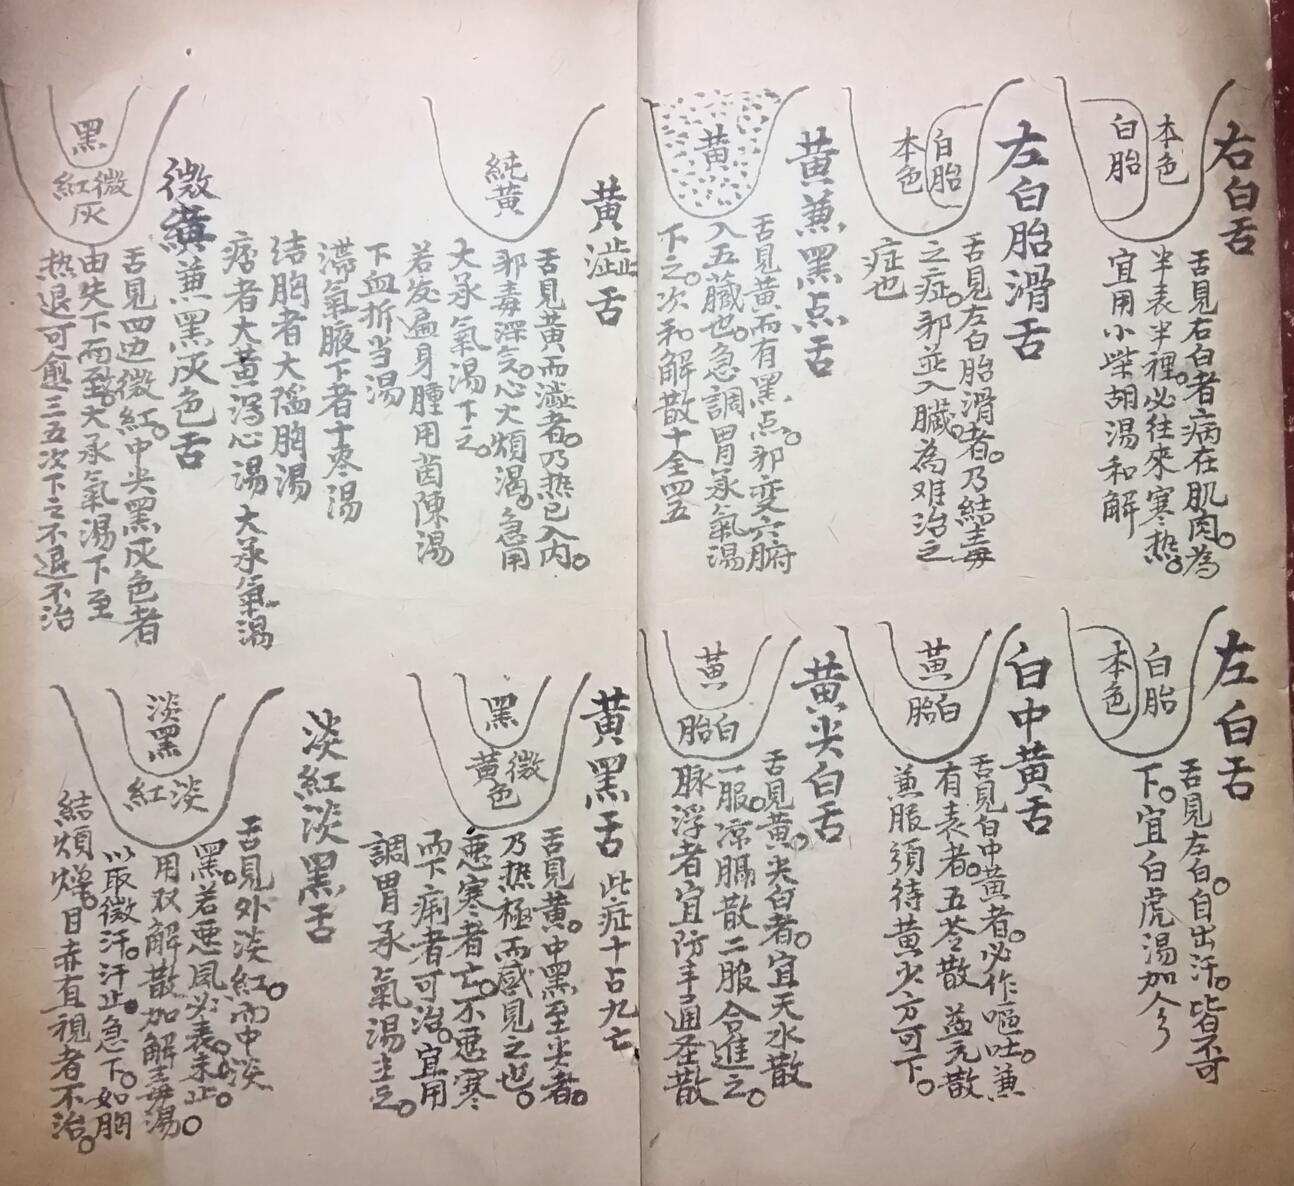 右白舌
本色
白胎
舌見右白者病在肌肉。為
半表半裡。必往來寒热。
宜用小柴胡湯和解
左白舌
白胎
本色
舌見左白。自出汗。皆不可
下。宜白虎湯加
左白胎滑舌
白胎
本色
舌見左白胎滑者。乃結毒
之症。邪並入臟。為难治之
症也
白中黄舌
黄
白胎
舌見白中黄者。必作嘔吐。兼
有表者。五苓散 益元散
兼服須待黄少方可下。
黄兼黑点舌
黄
舌見黄而有黑点。邪变六腑
入五臟也。急調胃承氣湯
下之。次和解散十全四五
黄尖白舌
黄
白胎
舌見黄。尖白者。宜天水散
一服。凉膈散二服合進之。
脉浮者宜防手通圣散
黄澁舌
純黄
舌見黄而澁者。乃热已入内。
邪毒深矣。心火煩渴。急用
大承氣湯下之。
若发遍身腫用茵陳湯
下血折当湯
滞氣腋下者十枣湯
結胸者大陥胸湯
痞者大黄瀉心湯 大承氣湯
黄黑舌 此症十占九亡
黑
微黄色
舌見黄。中黑至尖者。
乃热極而感見之也。
惡寒者亡。不惡寒
而下痢者可治。宜用
調胃承氣湯主之。
微黄兼黑灰色舌
黑
微紅灰
舌見四边微紅。中尖黑灰色者
由失下而致。大承氣湯下至
热退可愈三五次下之不退不治
淡紅淡黑舌
淡黑
淡紅
舌見外淡紅。而中淡
黑。若惡風必表未止。
用双解散加解毒湯。
以取微汗。汗止急下。如胸
結煩燥。目赤直視者不治。